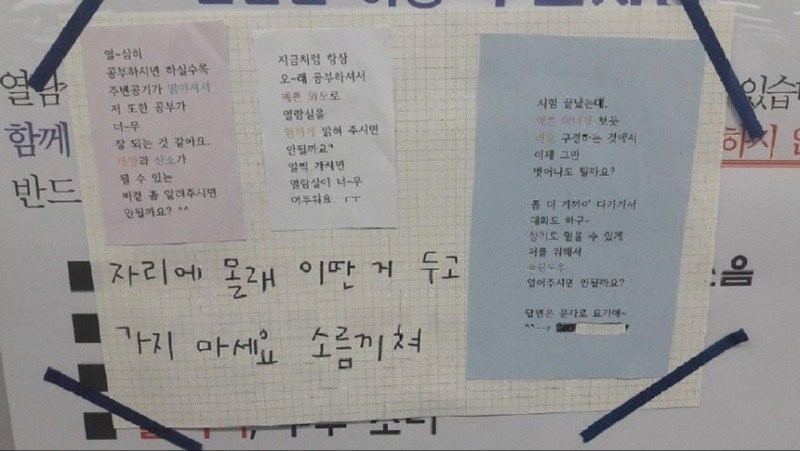 열~심히
공부하시면 하실수록
주변공기가 맑아져서
저 또한 공부가
너~무
잘 되는 것 같아요.
태양과 산소가
될 수 있는
비결 좀 알려주시면
안될까요? ^^
지금처럼 항상
오~래 공부하셔서
예쁜 외모로
열람실을
환하게 밝혀 주시면
안될까요?
일찍 가시면
열람실이 너~무
어두워요 ㅠㅜ
시험 끝났는데,
예쁜 보듯
구경하는 것에서
이제 그만
벗어나도 될까요?
좀 더 가까이 다가가서
대화도 하구~
향기도 맡을 수 있게
저를 위해서
열어주시면 안될까요?
답변은 문자로 요기에~
^^-->
자리에 몰래 이딴 거 두고
가지 마세요 소름끼쳐
열람
함께
반드
있습
하지 않
소음
소리